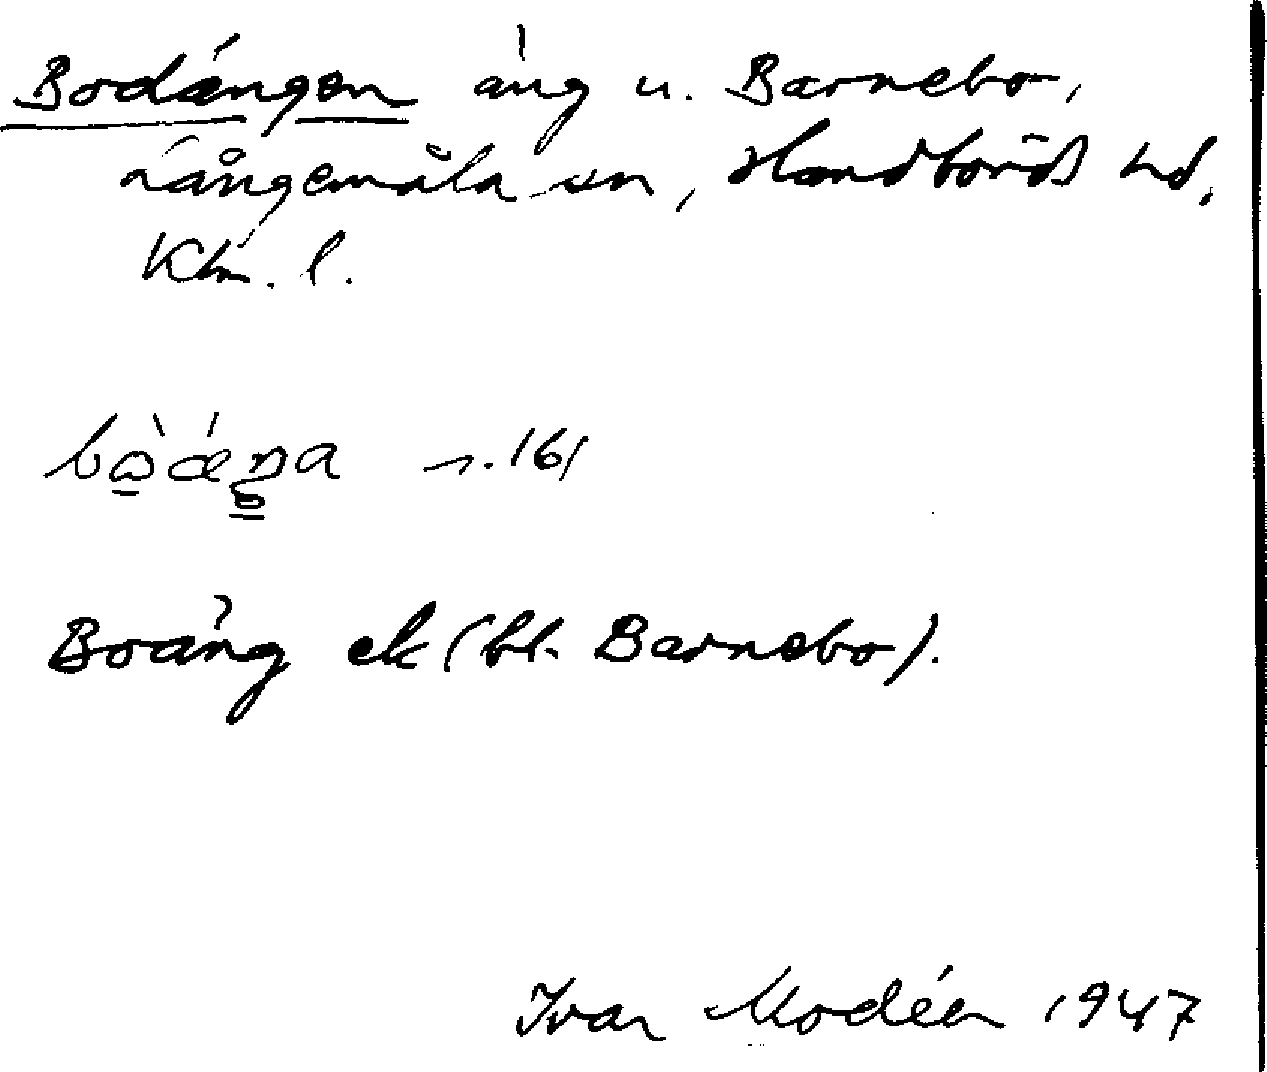 Bodängen äng u. Barnebo,
Långemåla sn, Handbörds hd,
Klm. l.
s. 161
Boäng ek (bl. Barnebo).
Ivar Modéer 1947